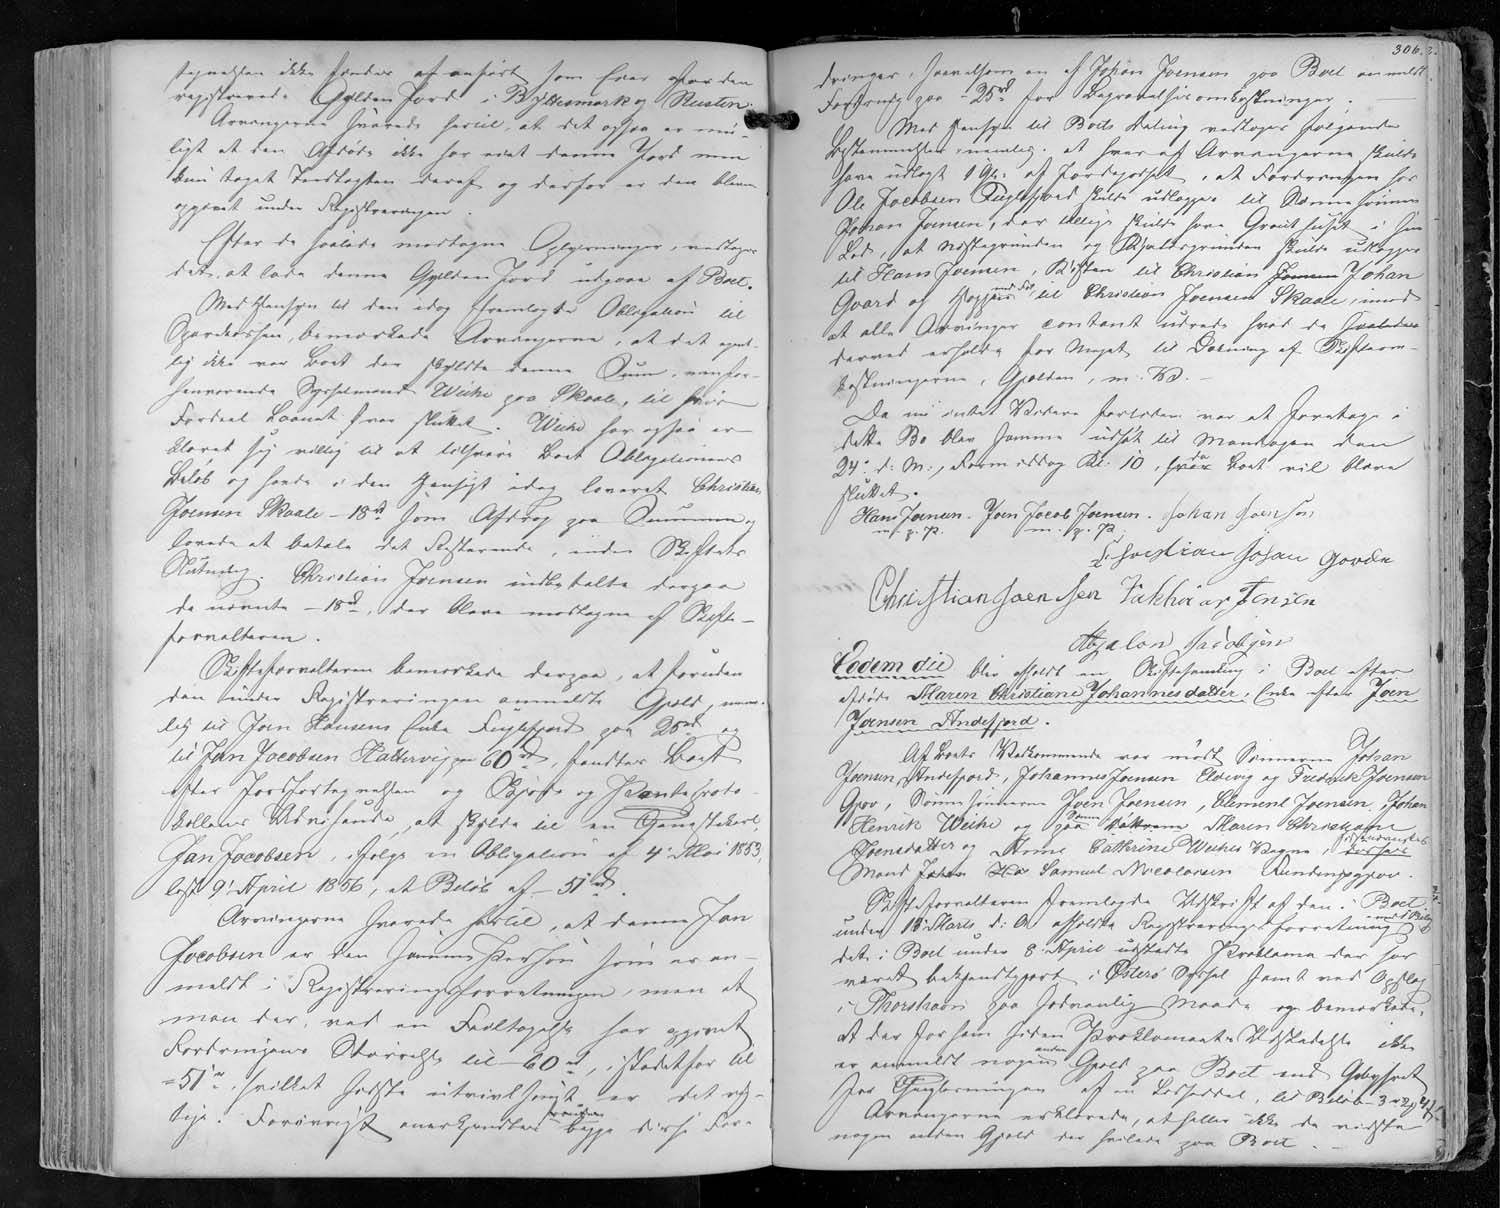 tegnelsen ikke findes af anført som hver for den
registrerede Gylden Jord i Byttesmark og Rusten.
Arvingerne svarede hertil, at det ogsaa er mu-
ligt at den Afdøde ikke har eiet denne Jord men
kun taget Landskylden deraf og derfor er den bleven
opgivet under Registreringen.
Efter de saalede modtagne Oplysninger, vedtoges
det, at lade denne Gylden Jord udgaae af Boet.
Med Hensyn til den idag fremlagte Obligation til
Sparekassen, bemærkede Arvingerne, at det egent-
lig ikke var Boet der skyldte denne Sum, men for-
henværende Sysselmand Weihe paa Skaale, til hvis
Fordeel Laanet var stiftet. Weihe har ogsaa er-
klæret sig villig til at tilsvare Boet Obligationens
Beløb og havde i den Hensigt idag leveret Christian
Joensen Skaale 18 rd som Afdrag paa Summen og
lovede at betale det Resterende, inden Skiftets
Slutning. Christian Joensen indbetalte derpaa
de nævnte 18 rd, der bleve modtagne af Skifte-
forvalteren.
Skifteforvalteren bemærkede derpaa, at foruden
den under Registreringen anmeldte Gjæld, nem-
lig til Joen Hansens Enke Fuglefjord paa 25 rd og
til Jan Jacobsen Hattervig paa 60 rd, fandtes Boet
efter Jordfortegnelsen og Skjøde og Panteproto-
kollens Udvisende, at skylde til en Gamstekarl,
Jan Jacobsen, ifølge en Obligation af 4 Mai 1853,
læst 9 April 1856, et Beløb af 51 rd.
Arvingerne svarede hertil, at denne Jan
Jacobsen er den samme Person som er an-
meldt i Registreringsforretningen, men at
man der, ved en Feiltagelse har opgivet
Fordringens Størrelse til 60 rd, istedetfor til
51 rd, hvilket sidste utvivlsomt er det rig-
tige. Forøvrigt anerkjendtes foruden begge disse For-
306.2.
dringer, saavelsom en af Johan Joensen paa Boet anmeldt
Fordring paa 25 rd for Begravelsesomkostninger.
Med Hensyn til Boets Deling vedtoges følgende
Bestemmelser, nemlig: at hver af Arvingerne skulde
have udlagt 1 Gl. af Jordegodset, at Fordringen hos
Ole Jacobsen Fuglefjord skulde udlægges til Sønnesønnen
Johan Joensen, der tillige skulde have Grauthuset i sin
Lod, at Nøstegrunden og Kjældergrunden skulde udlægges
til Hans Joensen, Kisten til Christian Joensen Johan
Gaard og til Christian Joensen Skaale, imod
at alle Arvinger contant udrede hvad de saaledes
derved erholde for Meget til Dækning af Skifteom-
kostningerne, Gjælden, m. V.
Da nu intet Videre forløben var at foretage i
dette Bo blev samme udsat til Mandagen den
24 d: M:, Formiddag Kl. 10, hvor da Boet vil blive
sluttet.
Hans Joensen. Joen Jacob Joensen. Johan Joensen
m. f. P. m. f. P.
Christian Johan Gaarde
Christian Joensen Zakkarias Jensen
Absalon Jacobsen
Eodem die blev afholdt en Skiftesamling i Boet efter
afdøde Maren Christiane Johannesdatter, Enke efter Joen
Joensen Andefjord.
Af Boets Vedkommende var mødt Sønnerne Johan
Joensen, Andefjord, Johannes Joensen Eldevig og Frederik Joensen
Gjov, Sønnesønnerne Joen Joensen, Clement Joensen, Johan
Henrik Weihe og paa Maren Christiane
Joensdatter og Anne Cathrine Weihes Vegne,
Mand Samuel Nicolaisen Fundingsgjov.
Skifteforvalteren fremlagde Udskrift af den i Boet
under 18 Marts d: A. afholdte Registreringsforretning
det i Boet under 8 April udstedte Proklama der har
været bekjendtgjort i Østerø Syssel samt ved Opslag
i Thorshavn paa sædvanlig Maade og bemærkede,
at der for ham siden Proklamaets Udstedelse ikke
er anmeldt nogen anden Gjæld paa Boet end Gebyhret
for af en Beløb 3
Arvingerne erklærede, at heller ikke de vidste
nogen anden Gjæld der hvilede paa Boet.